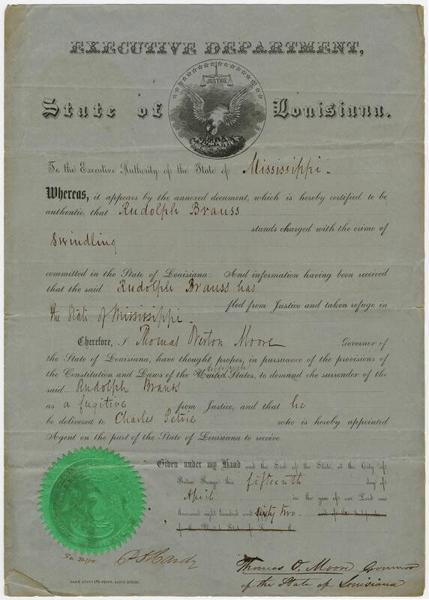 EXECUTIVE DEPARTMENT,
JUSTICE
State of Louisiana.
To the Executive Authority of the State of Mississippi.
Whereas, it appears by the annexed document, which is hereby certified to be
authentic, that Rudolph Brauss
stands charged with the crime of
Swindling
committed in the State of Louisiana: And information having been received
that the said Rudolph Brauss has
fled from Justice and taken refuge in
the State of Mississippi.
Therefore, I Thomas Overton Moore Governor of
the State of Louisiana, have thought proper, in pursuance of the provisions of
the Constitution and Laws of the United States, to demand the surrender of the
said Rudolph Brauss
as a fugitive from Justice, and that he
be delivered to Charles Petrie who is hereby appointed
Agent on the part of the State of Louisiana to receive
Given under my Hand and the Seal of the State, at the City of
Baton Rouge this fifteenth day of
April in the year of our Lord one
thousand eight hundred and sixty two
Hardy
Thomas O. Moore Governor
of the State of Louisiana